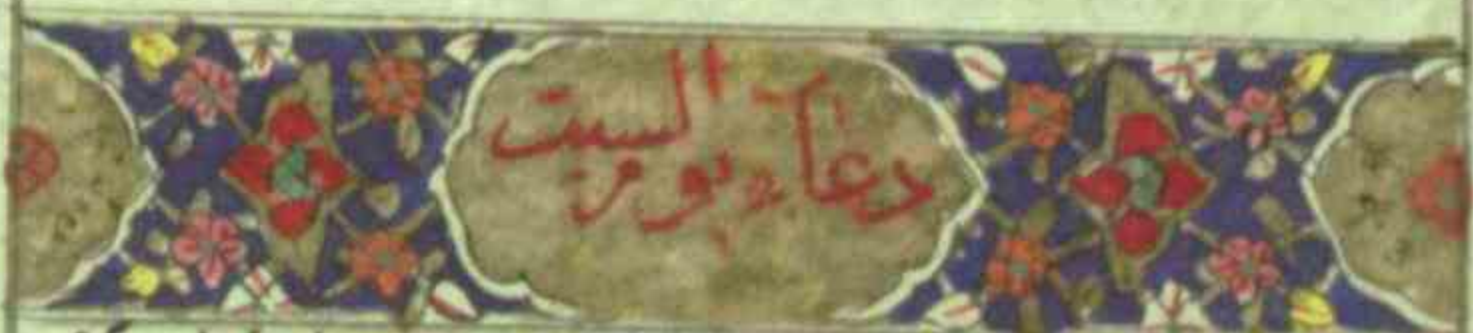 دعاء يوم السبت